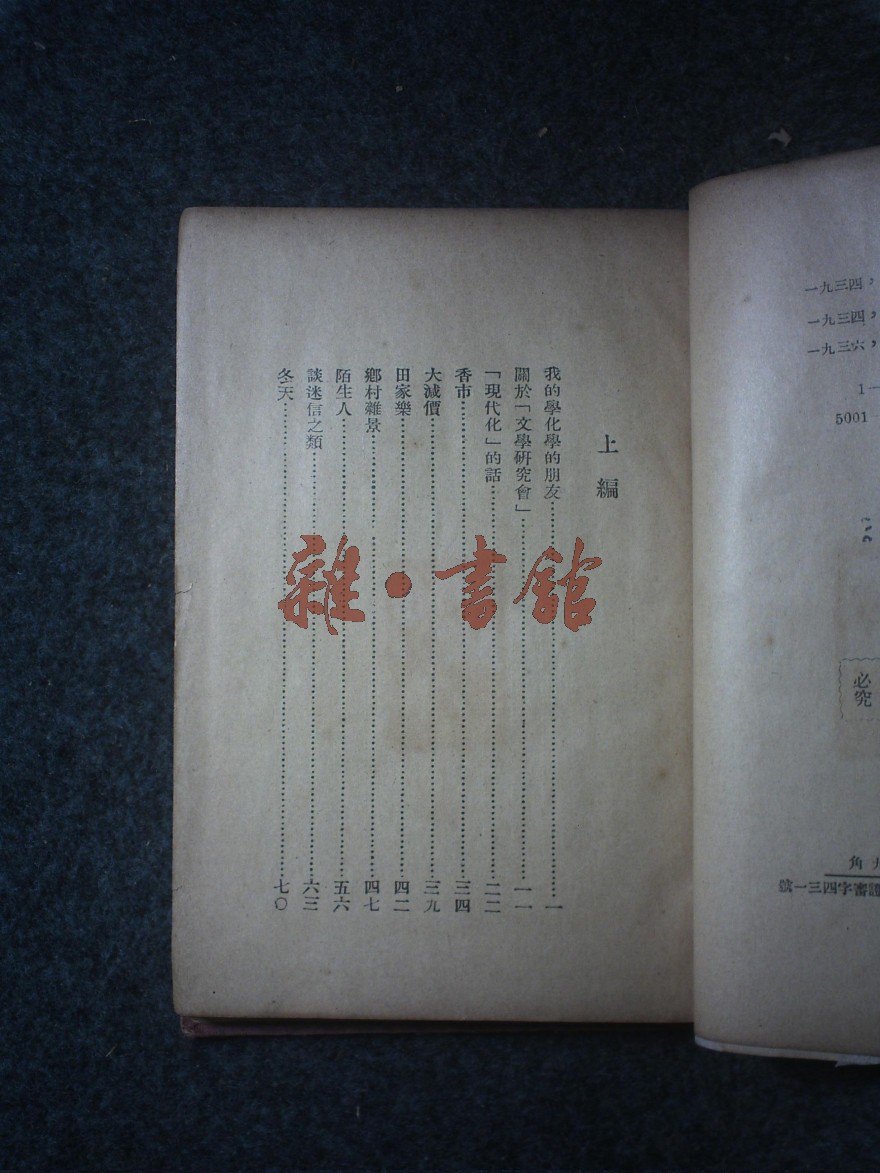 一九三四，
一九三四，
一九三六，
1—
5001—
必究
角
審字四三一號
上編
我的學化學的朋友……一
關於「文學研究會」……一一
「現代化」的話……二二
香市……三四
大減價……三九
田家樂……四二
鄉村雜景……四七
陌生人……五六
談迷信之類……六三
冬天……七〇
雜·書館